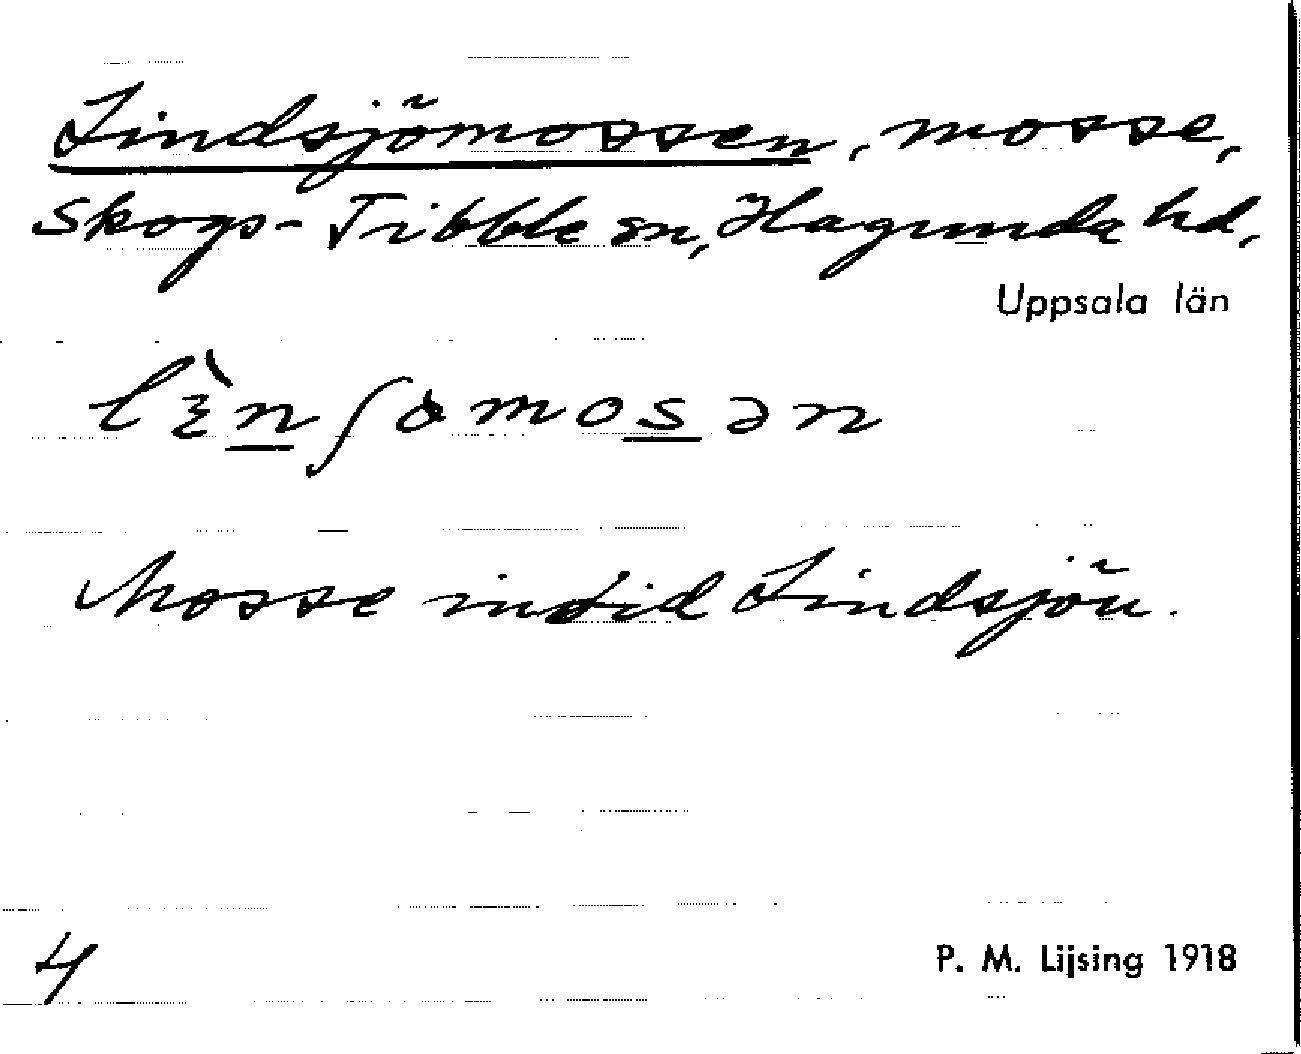 Lindsjömossen, mosse,
Skogs-Tibble sn, Hagunda hd,
Uppsala län
Mosse intid Lindsjön.
4
P. M. Lijsing 1918